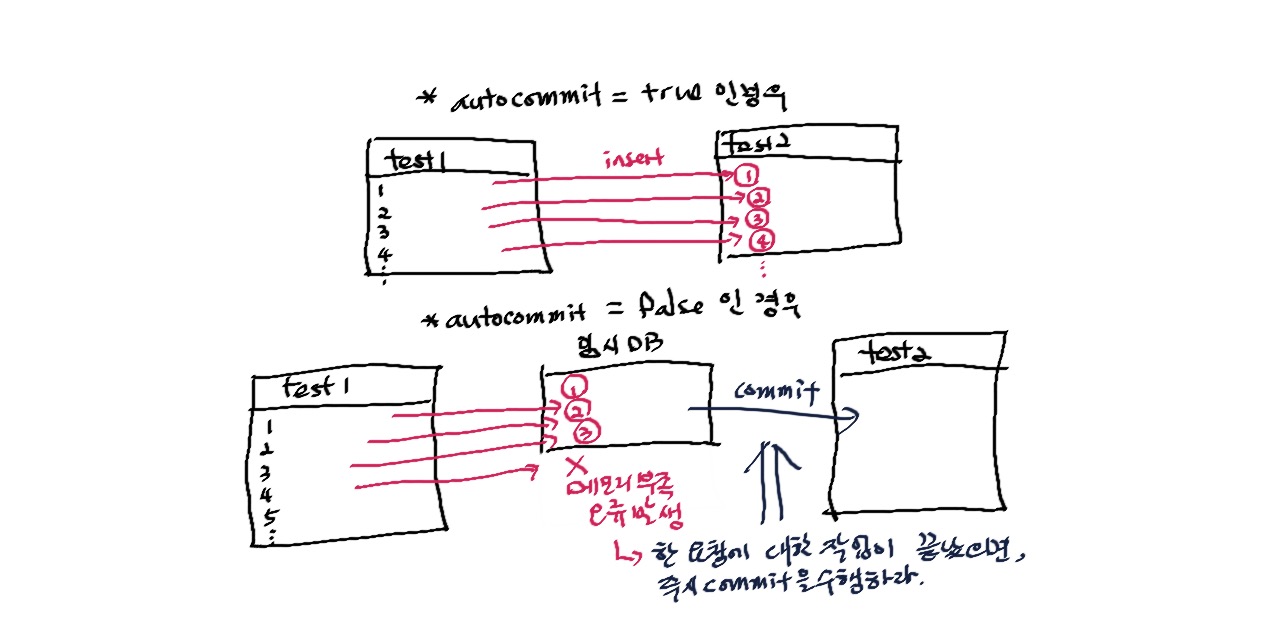 * autocommit = true 인경우
test1
insert
test2
1
2
3
4
⋮
①
②
③
④
⋮
* autocommit = false 인 경우
임시 DB
test1
1
2
3
4
5
⋮
①
②
③
X
메모리부족
오류발생
commit
test2
↳ 한 요청에 대한 작업이 끝났으면,
즉시 commit을 수행하라.